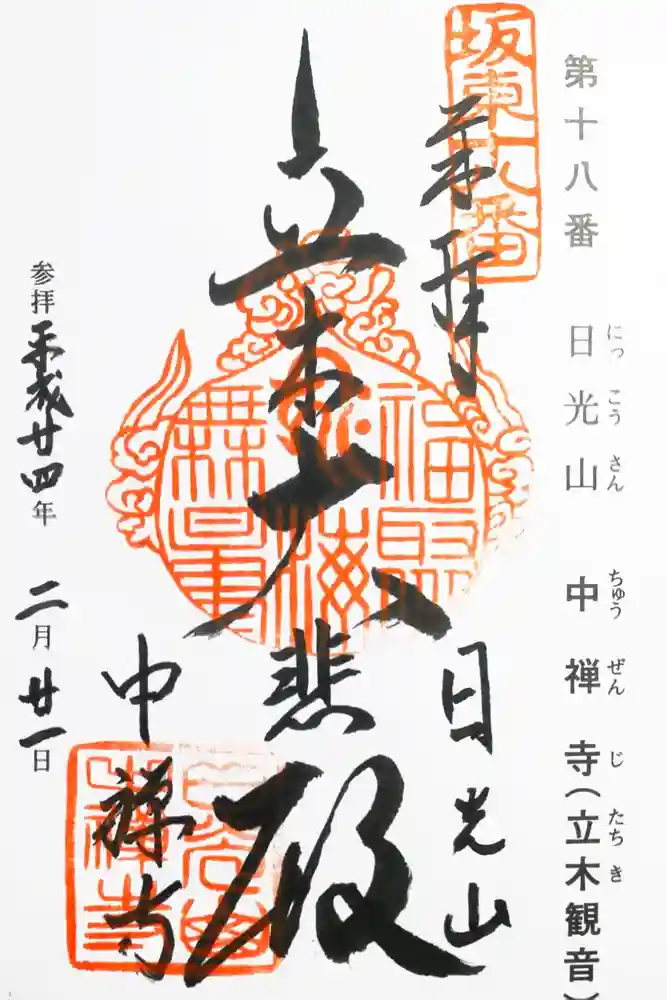 にっこうさん ちゅうぜんじ たちき
第十八番 日光山 中禅寺(立木観音)
坂東十八番
奉拝
日光山
立木大悲殿
福聚海無量
中禅寺
参拝平成廿四年二月廿一日